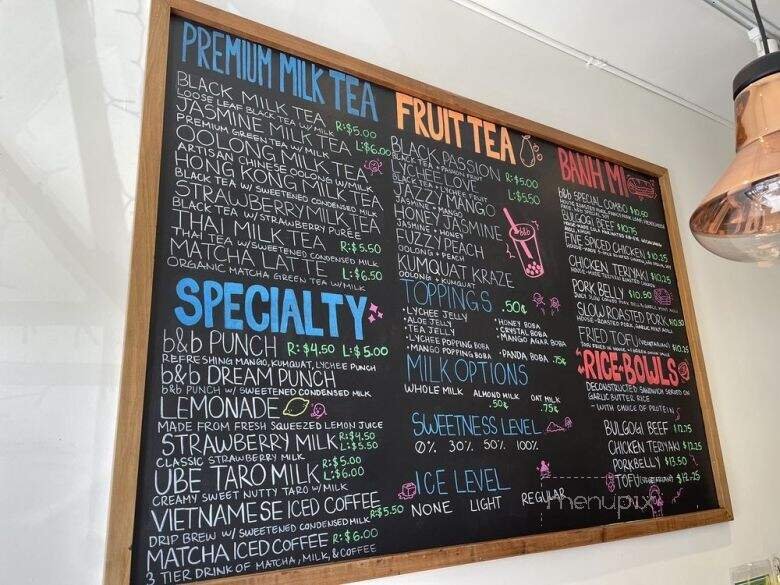 PREMIUM MILK TEA
BLACK MILK TEA R:$5.00
LOOSE LEAF BLACK TEA W/ MILK
JASMINE MILK TEA L:$6.00
PREMIUM GREEN TEA W/ MILK
OOLONG MILK TEA
ARTISAN CHINESE OOLONG W/ MILK
HONG KONG MILK TEA
BLACK TEA W/ SWEETENED CONDENSED MILK
STRAWBERRY MILK TEA
BLACK TEA W/ STRAWBERRY PUREE
THAI MILK TEA R:$5.50
THAI TEA W/ SWEETENED CONDENSED MILK
MATCHA LATTE L:$6.50
ORGANIC MATCHA GREEN TEA W/ MILK
SPECIALTY
b&b PUNCH R:$4.50 L:$5.00
REFRESHING MANGO, KUMQUAT, LYCHEE PUNCH
b&b DREAM PUNCH
b&b PUNCH W/ SWEETENED CONDENSED MILK
LEMONADE
MADE FROM FRESH SQUEEZED LEMON JUICE
STRAWBERRY MILK R:$4.50 L:$5.50
CLASSIC STRAWBERRY MILK
UBE TARO MILK R:$5.00 L:$6.00
CREAMY SWEET NUTTY TARO W/ MILK
VIETNAMESE ICED COFFEE R:$5.50
DRIP BREW W/ SWEETENED CONDENSED MILK
MATCHA ICED COFFEE R:$6.00
3 TIER DRINK OF MATCHA, MILK, & COFFEE
FRUIT TEA
BLACK PASSION R:$5.00
BLACK TEA + PASSION FRUIT
LYCHEE LOVE L:$5.50
BLACK TEA + LYCHEE FRUIT
JAZZY MANGO
JASMINE + MANGO
HONEY JASMINE
JASMINE + HONEY
FUZZY PEACH
OOLONG + PEACH
KUMQUAT KRAZE
OOLONG + KUMQUAT
b&b
TOPPINGS .50¢
•LYCHEE JELLY •HONEY BOBA
•ALOE JELLY •CRYSTAL BOBA
•TEA JELLY •MANGO AGAR BOBA
•LYCHEE POPPING BOBA
•MANGO POPPING BOBA •PANDA BOBA .75¢
MILK OPTIONS
WHOLE MILK ALMOND MILK .50¢ OAT MILK .75¢
SWEETNESS LEVEL
0% 30% 50% 100%
ICE LEVEL
NONE LIGHT REGULAR
BANH MI
b&b SPECIAL COMBO $10.50
BULGOGI BEEF $10.75
FIVE SPICED CHICKEN $10.25
CHICKEN TERIYAKI $10.25
PORK BELLY $10.50
SLOW ROASTED PORK $10.50
FRIED TOFU (VEGETARIAN) $10.25
RICE BOWLS
DECONSTRUCTED SANDWICH SERVED ON
GARLIC BUTTER RICE
- WITH CHOICE OF PROTEIN
BULGOGI BEEF $12.75
CHICKEN TERIYAKI $12.25
PORKBELLY $13.50
TOFU (VEGETARIAN) $12.25
menupix